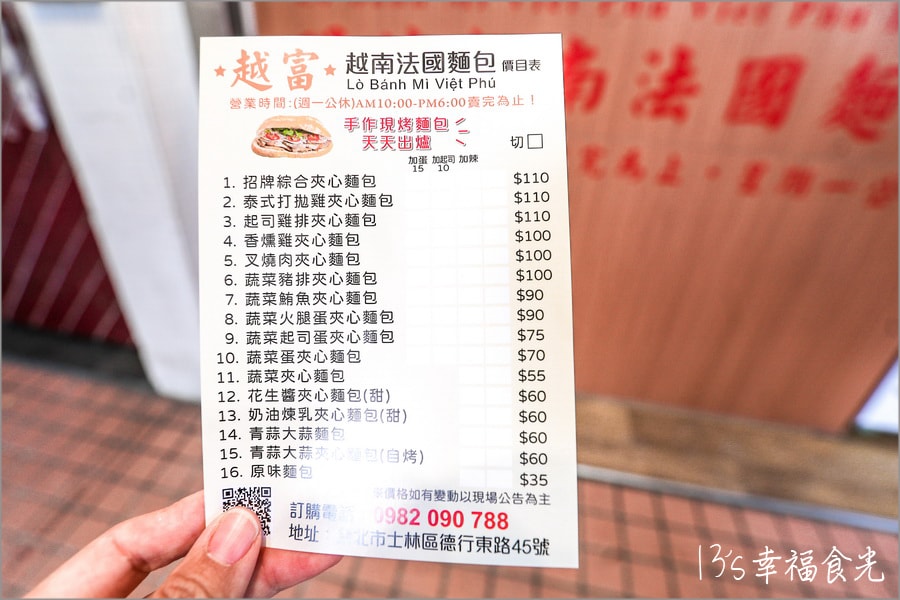 ★越富★ 越南法國麵包 價目表
Lò Bánh Mì Việt Phú
營業時間:(週一公休)AM10:00-PM6:00賣完為止！
手作現烤麵包
天天出爐
切□
加蛋 加起司 加辣
15 10
1. 招牌綜合夾心麵包 $110
2. 泰式打拋雞夾心麵包 $110
3. 起司雞排夾心麵包 $110
4. 香燻雞夾心麵包 $100
5. 叉燒肉夾心麵包 $100
6. 蔬菜豬排夾心麵包 $100
7. 蔬菜鮪魚夾心麵包 $90
8. 蔬菜火腿蛋夾心麵包 $90
9. 蔬菜起司蛋夾心麵包 $75
10. 蔬菜蛋夾心麵包 $70
11. 蔬菜夾心麵包 $55
12. 花生醬夾心麵包(甜) $60
13. 奶油煉乳夾心麵包(甜) $60
14. 青蒜大蒜麵包 $60
15. 青蒜大蒜夾心麵包(自烤) $60
16. 原味麵包 $35
價格如有變動以現場公告為主
訂購電 0982 090 788
地址 北市士林區德行東路45號
南法國麵
13's幸福食光